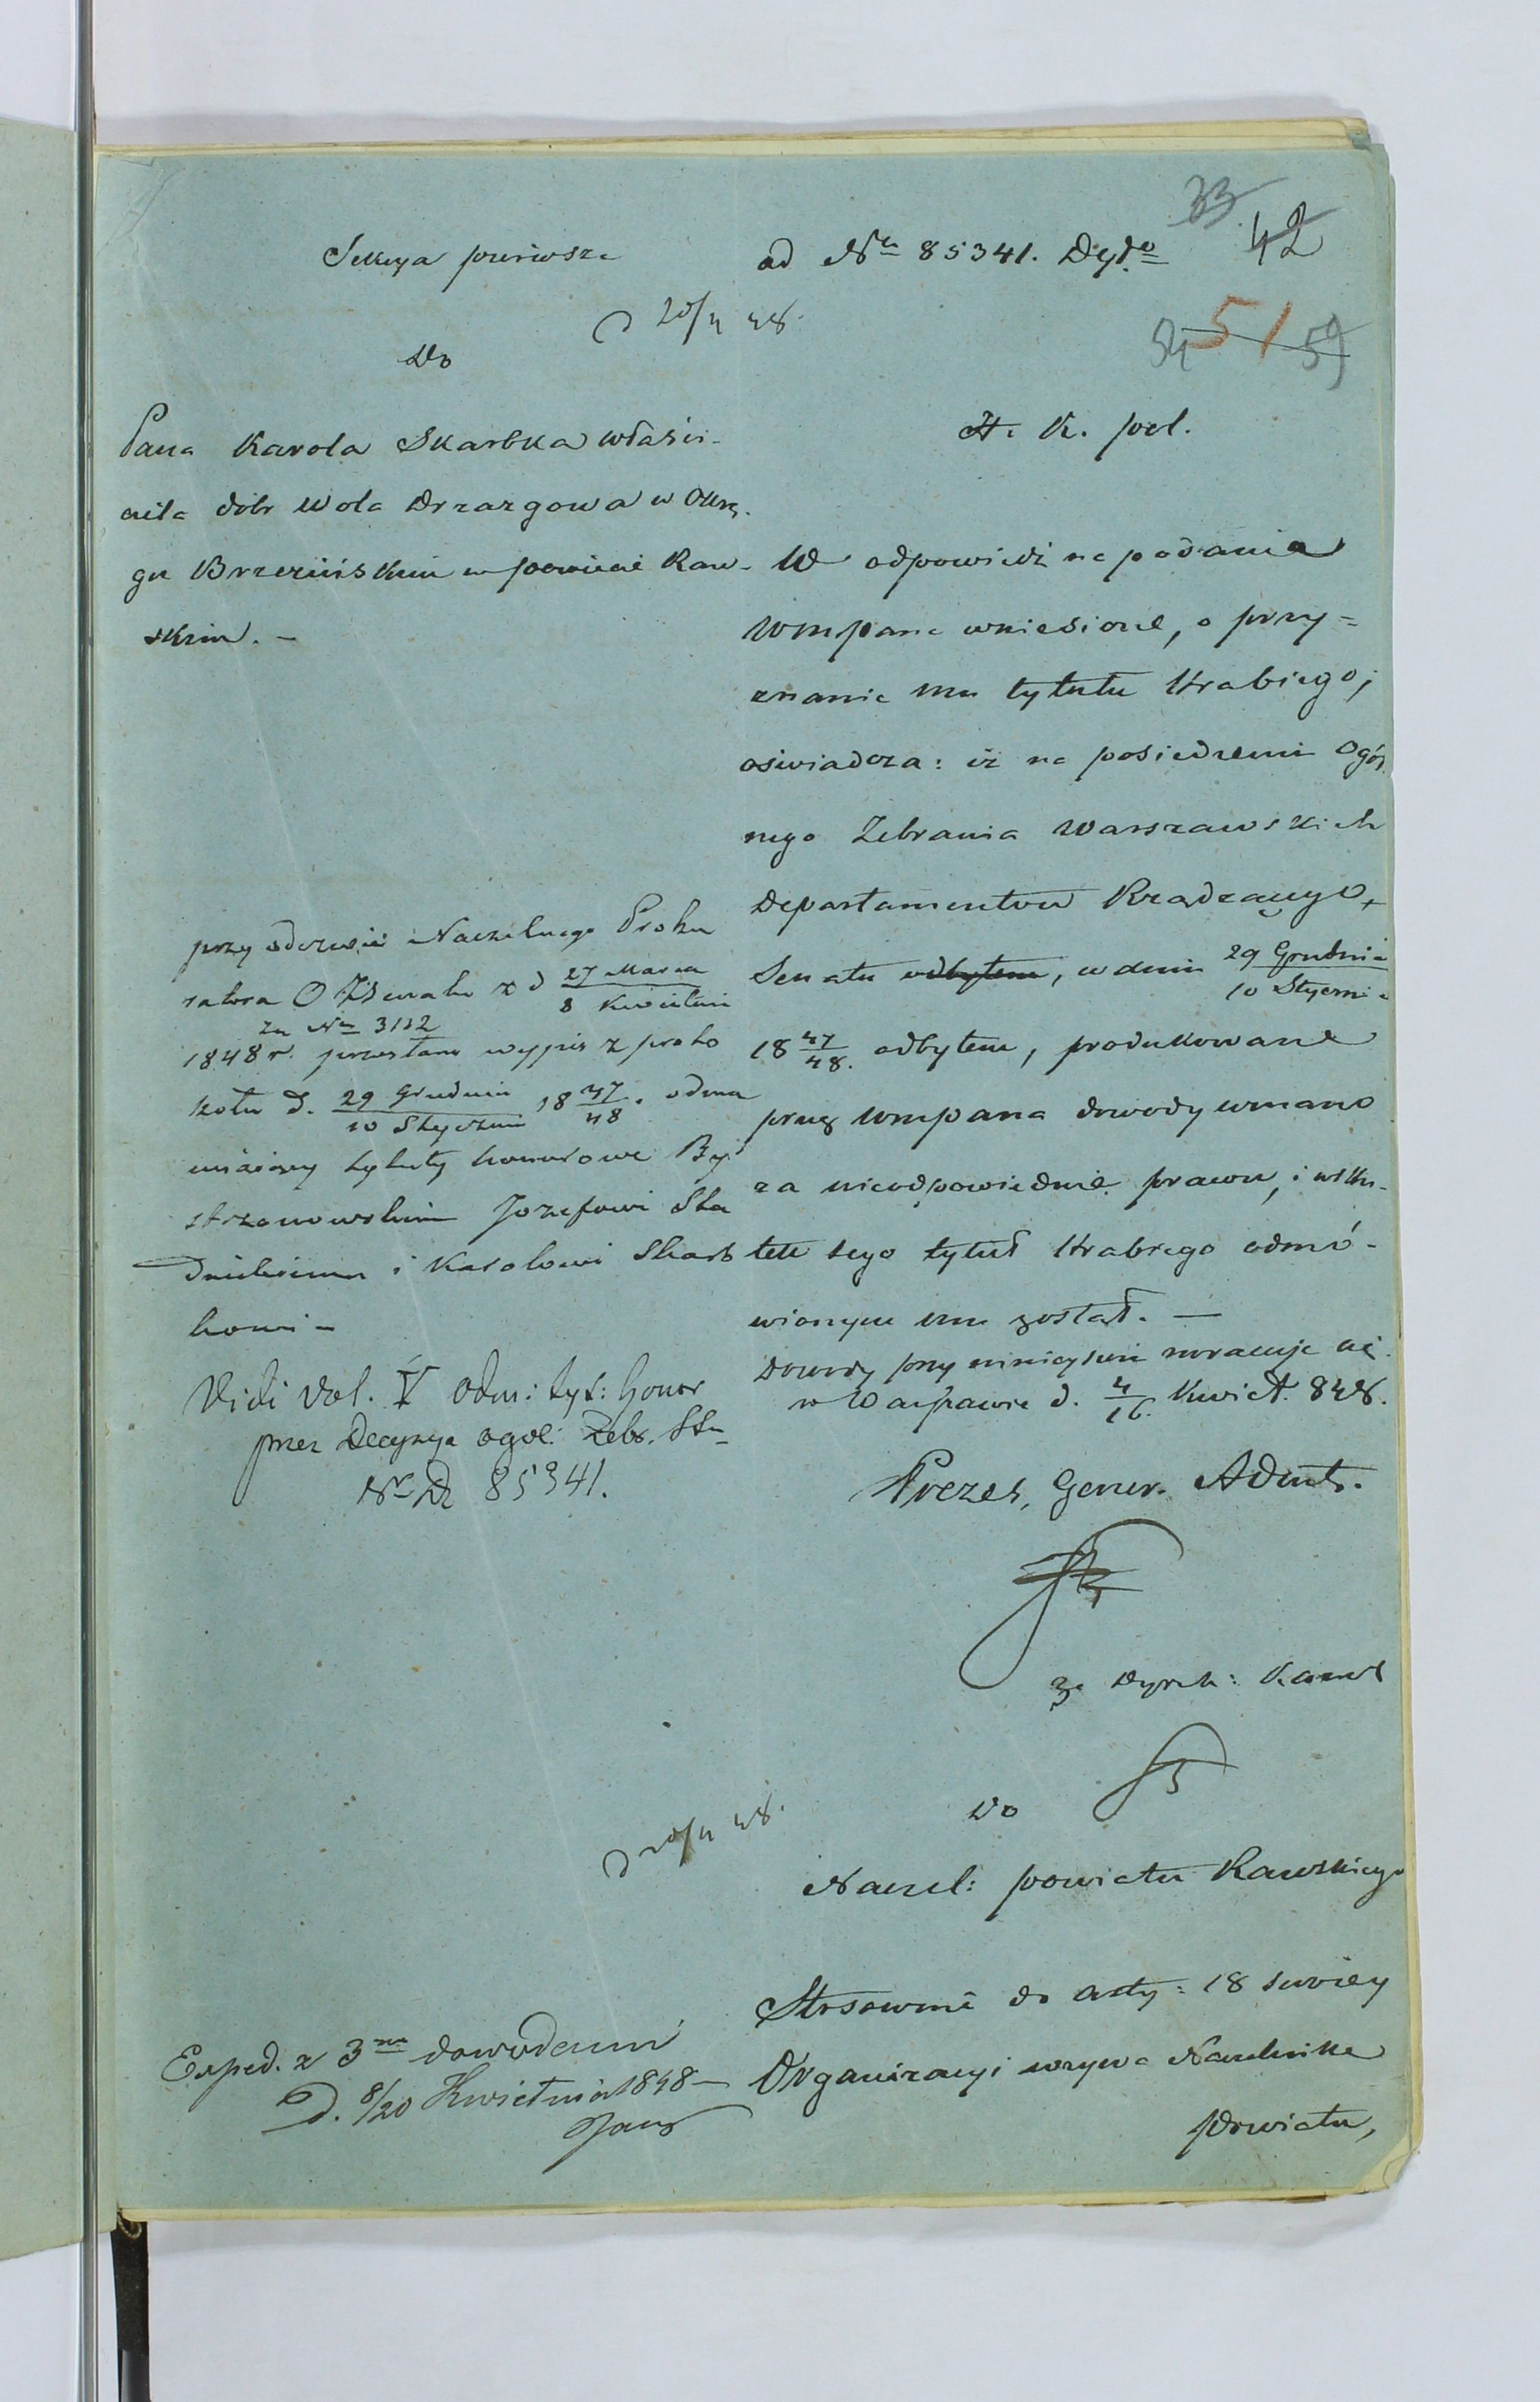 33
42
Sekcya pierwsza
ad Nr 85341. Dyto
d 20/4 48.
51 59
Do
Pana Karola Skarbka właści-
ciela dóbr Wola Drzazgowa w Okrę-
gu Brzezińskim w powiecie Raw-
skim. -
H. K. pol.
W odpowiedzi na podania
Wmpana wniesione, o przy=
znanie mu tytułu Hrabiego;
oświadcza: iż na posiedzeniu Ogól
nego Zebrania Warszawskich
Departamentów Rządzącego
Senatu odbytem, w dniu 29 Grudnia / 10 Stycznia
18 47/48. odbytem, produkowane
przez Wmpana dowody uznano
za nieodpowiednie prawu, i wsku-
tek tego tytuł Hrabiego odmó-
wionym mu został. —
Dowody przy niniejszem zwracają się.
w Warszawie d. 4/16. Kwiet. 848.
Prezes, Gener. Adiut.
za Dyrek:
przy odezwie Naczelnego Proku
ratora O Z Senatu z d 27 Marca / 8 Kwietnia
za Nr 3132
1848 r. przesłano wypis z proto
kołu d. 29 Grudnia / 10 Stycznia 18 47/48. odma
wiaiący tytuły honorowe By
strzonowskim Jozefowi Sta
dnickiemu i Karolowi Skarb
kowi -
Vidi Vol. V odm: tyt: honor
przez Decyzye ogól: Zebr. Stu
Nr D 85341.
d 20/4 48.
Do
Naczel: powiatu Rawskiego
Stosownie do arty: 18 swoiey
Organizacyi wzywa Naczelnika
powiatu,
Exped. z 3ma dowodami
D. 8/20 Kwietnia 1848 —